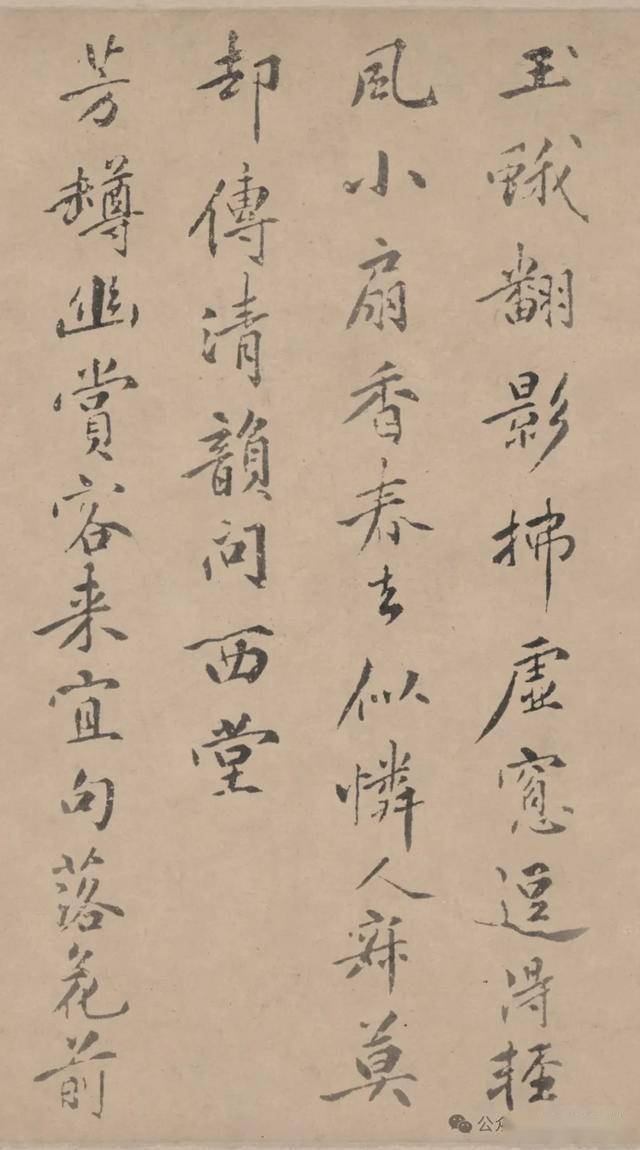 玉蛾翻影拂虚窓逗得輕
風小扇香春去似憐人寂莫
却傳清韻問西堂
芳罇幽賞客来宜句落花前
公